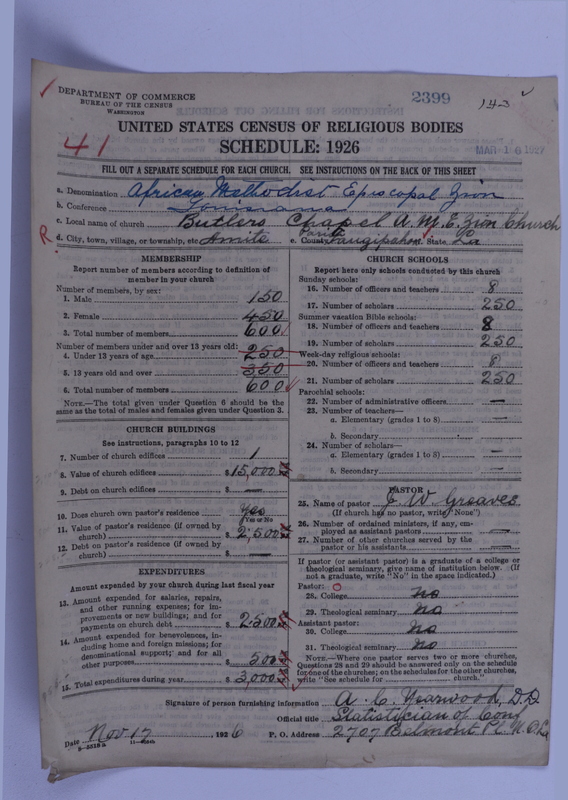 DEPARTMENT OF COMMERCE
BUREAU OF THE CENSUS
WASHINGTON
2399
143
41
UNITED STATES CENSUS OF RELIGIOUS BODIES
SCHEDULE: 1926
MAR 16 1927
FILL OUT A SEPARATE SCHEDULE FOR EACH CHURCH. SEE INSTRUCTIONS ON THE BACK OF THIS SHEET
a. Denomination African Methodist Episcopal Zion
b. Conference Louisiana
c. Local name of church Butlers Chapel A. M. E. Zion Church
R
d. City, town, village, or township, etc. Amite e. County Tangipahoa f. State La
MEMBERSHIP
Report number of members according to definition of member in your church
Number of members, by sex:
1. Male 150
2. Female 450
3. Total number of members 600
Number of members under and over 13 years old:
4. Under 13 years of age 250
5. 13 years old and over 350
6. Total number of members 600
NOTE.—The total given under Question 6 should be the same as the total of males and females given under Question 3.
CHURCH BUILDINGS
See instructions, paragraphs 10 to 12
7. Number of church edifices 1
8. Value of church edifices $15,000
9. Debt on church edifices $ —
10. Does church own pastor's residence Yes
Yes or No
11. Value of pastor's residence (if owned by church) $2,500
12. Debt on pastor's residence (if owned by church) $ —
EXPENDITURES
Amount expended by your church during last fiscal year
13. Amount expended for salaries, repairs, and other running expenses; for improvements or new buildings; and for payments on church debt $2500
14. Amount expended for benevolences, including home and foreign missions; for denominational support; and for all other purposes $500
15. Total expenditures during year $3,000
CHURCH SCHOOLS
Report here only schools conducted by this church
Sunday schools:
16. Number of officers and teachers 8
17. Number of scholars 250
Summer vacation Bible schools:
18. Number of officers and teachers 8
19. Number of scholars 250
Week-day religious schools:
20. Number of officers and teachers 8
21. Number of scholars 250
Parochial schools:
22. Number of administrative officers —
23. Number of teachers—
a. Elementary (grades 1 to 8) —
b. Secondary
24. Number of scholars—
a. Elementary (grades 1 to 8) —
b. Secondary —
PASTOR
25. Name of pastor J. W. Greaves
(If church has no pastor, write "None")
26. Number of ordained ministers, if any, employed as assistant pastors —
27. Number of other churches served by the pastor or his assistants —
If pastor (or assistant pastor) is a graduate of a college or theological seminary, give name of institution below. (If not a graduate, write "No" in the space indicated.)
Pastor:
28. College no
29. Theological seminary no
Assistant pastor:
30. College no
31. Theological seminary no
NOTE.—Where one pastor serves two or more churches, Questions 28 and 29 should be answered only on the schedule for one of the churches; on the schedules for the other churches, write "See schedule for church."
Signature of person furnishing information A. C. Yearwood, D.D
Official title Statistician of Conf
Date Nov 17, 1926 P. O. Address 2707 Belmont Pl. N. O. La